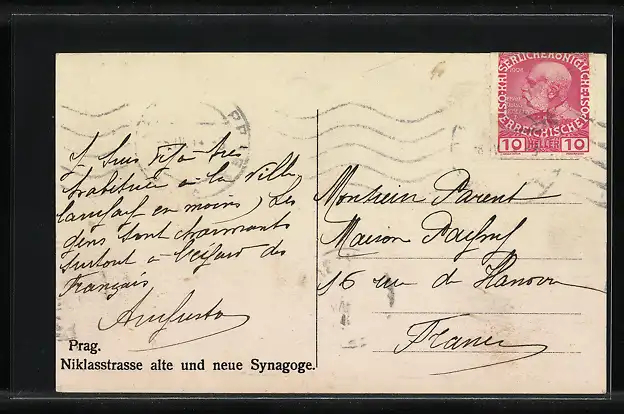 J suis déjà très
habituée à la ville
langage en moins, Les
gens sont charmants
surtout à l'égard des
Français
Augusta
Prag.
Niklasstrasse alte und neue Synagoge.
KAISERLICHE KÖNIGLICHE
ÖSTERREICHISCHE POST
1908
10 HELLER 10
Monsieur Parent
Maison
16 rue de Hanovre
France